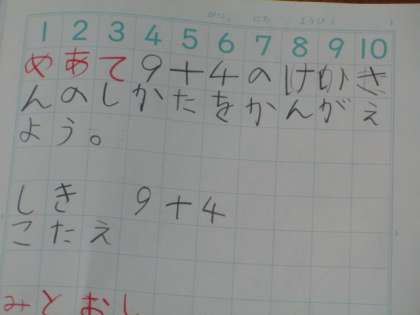 がつ にち ようび
1 2 3 4 5 6 7 8 9 10
めあて9+4のけいさ
んのしかたをかんがえ
よう。
しき 9+4
こたえ
みとおし